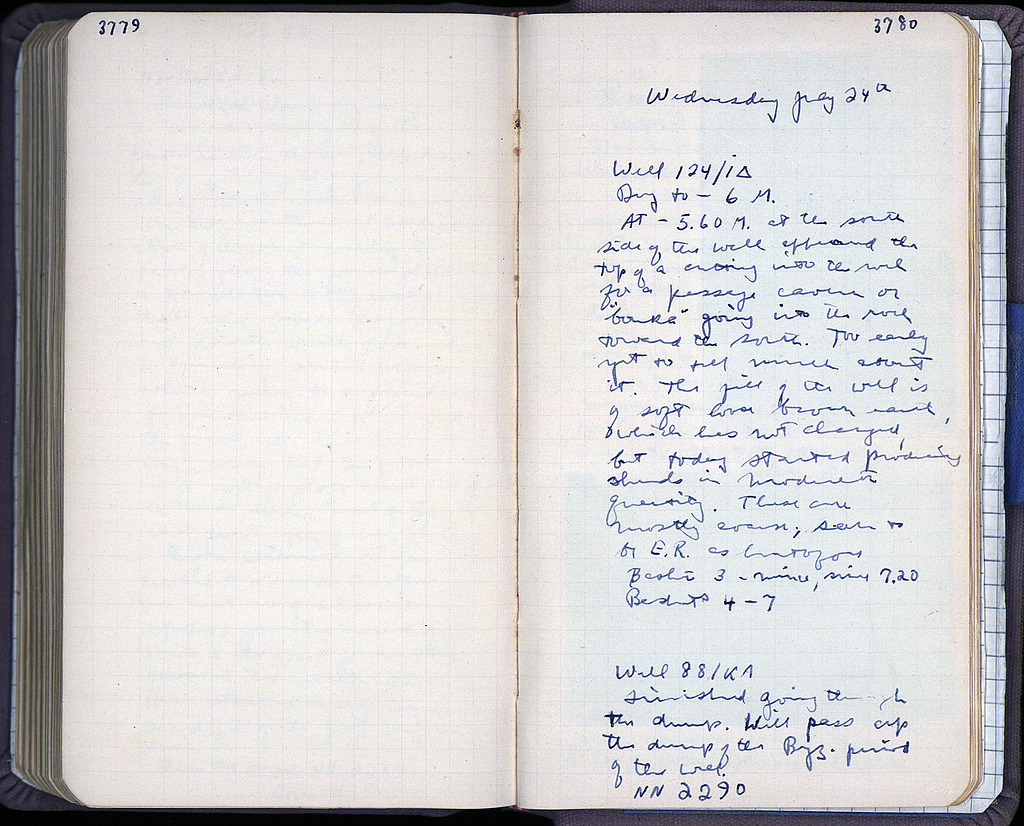 3779
3780
Wednesday July 24th
Well 124/ΙΔ
Dug to - 6 M.
At - 5.60 M. at the south
side of the well appeared the
top of a cutting into the well
for a passage cavern or
"bouka" going into the rock
toward the south. Too early
yet to tell much about
it. The fill of the well is
of soft loose brown earth,
which has not changed,
but today started producing
sherds in moderate
quantity. These are
mostly coarse; seem to
be E.R. as heretofore
Basket 3 - since 7.20
Baskets 4 - 7
Well 88/ΚΛ
Finished going through
the dump. Will pass up
the dump of the Byz. period
of the well.
NN 2290